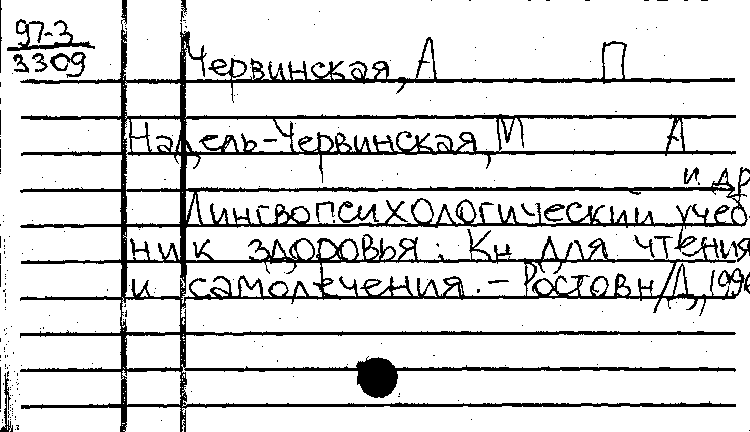 97-3
3309
Червинская, А П
Надель-Червинская, М А
и др
Лингвопсихологический учеб
ник здоровья: Кн для чтения
и самолечения. - Ростов н/Д, 1996